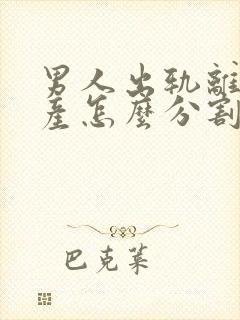 男人出轨離
産怎麽分割
巴克萊